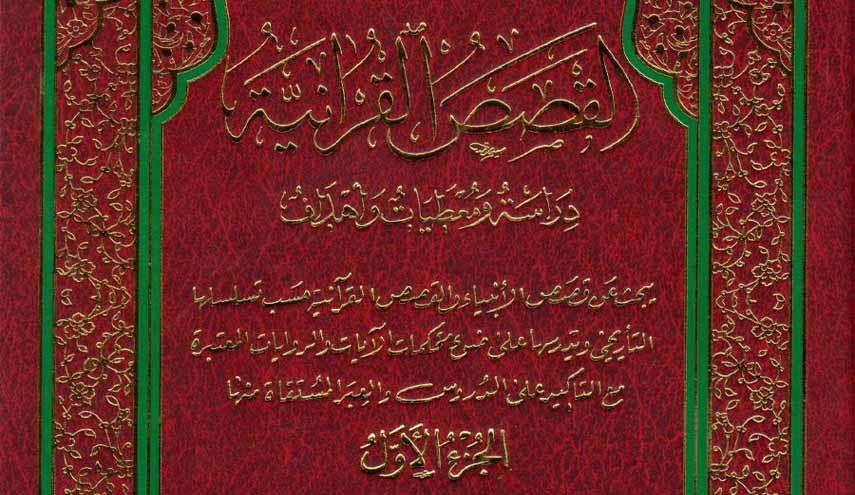 القَصَصُ القُرآنيَّة
دِرَاسَةٌ ومُعطَيَاتٌ وَأهدَافٌ
يبحث عن قصَص الأنبياء والقصص القرآنية حَسَب تسلسلها
التأريخي ويَدرسها على ضوء محكمات الآيات والروايات المعتبرة
مع التأكيد على الدُروس والعِبَر المُستقاة منها
الجُزءُ الأوَّلُ